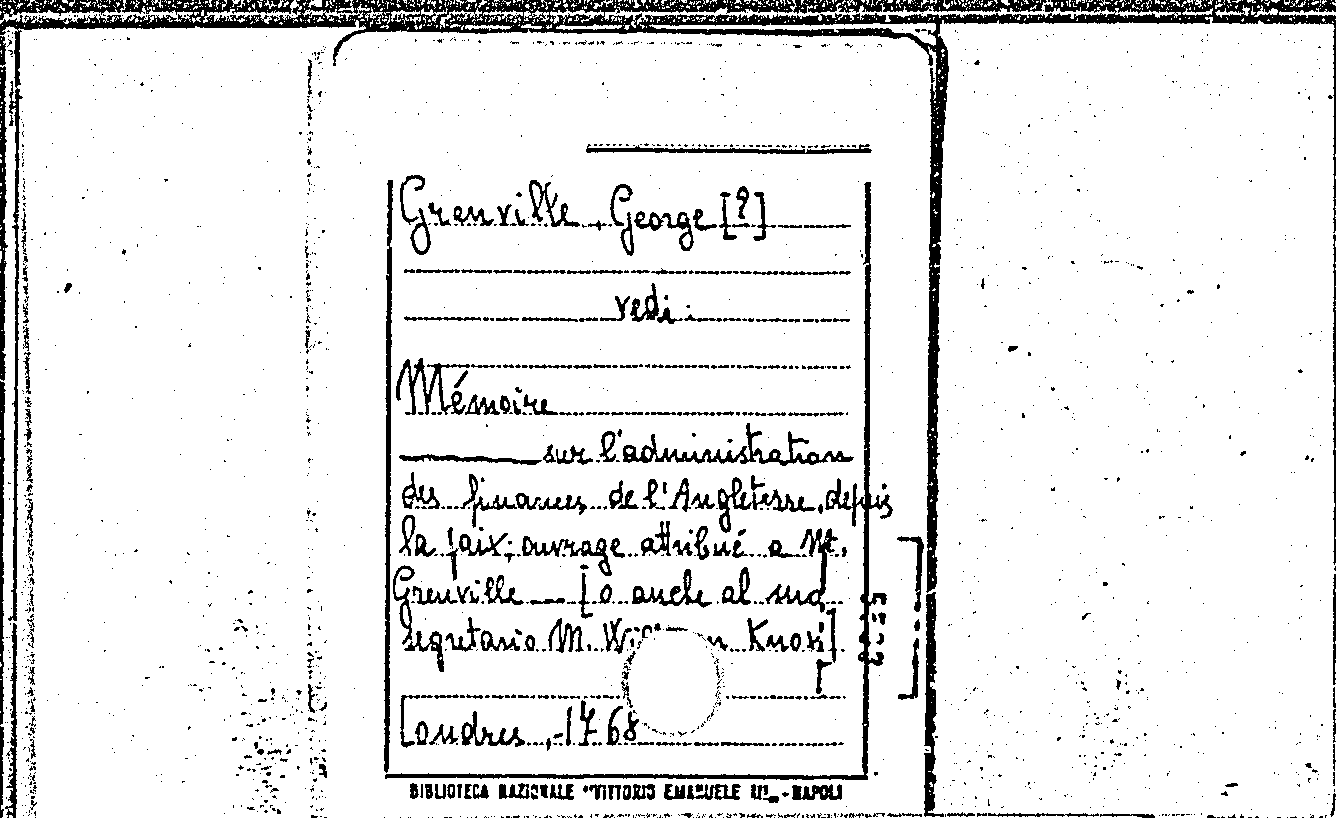 Grenville, George [?]
vedi:
Mémoire
sur l'administration
des finances de l'Angleterre, depuis
la paix; ouvrage attribué a M.
Grenville — [o anche al suo
segretario M. Knox]
Londres, 1768
BIBLIOTECA NAZIONALE "VITTORIO EMANUELE III" - NAPOLI